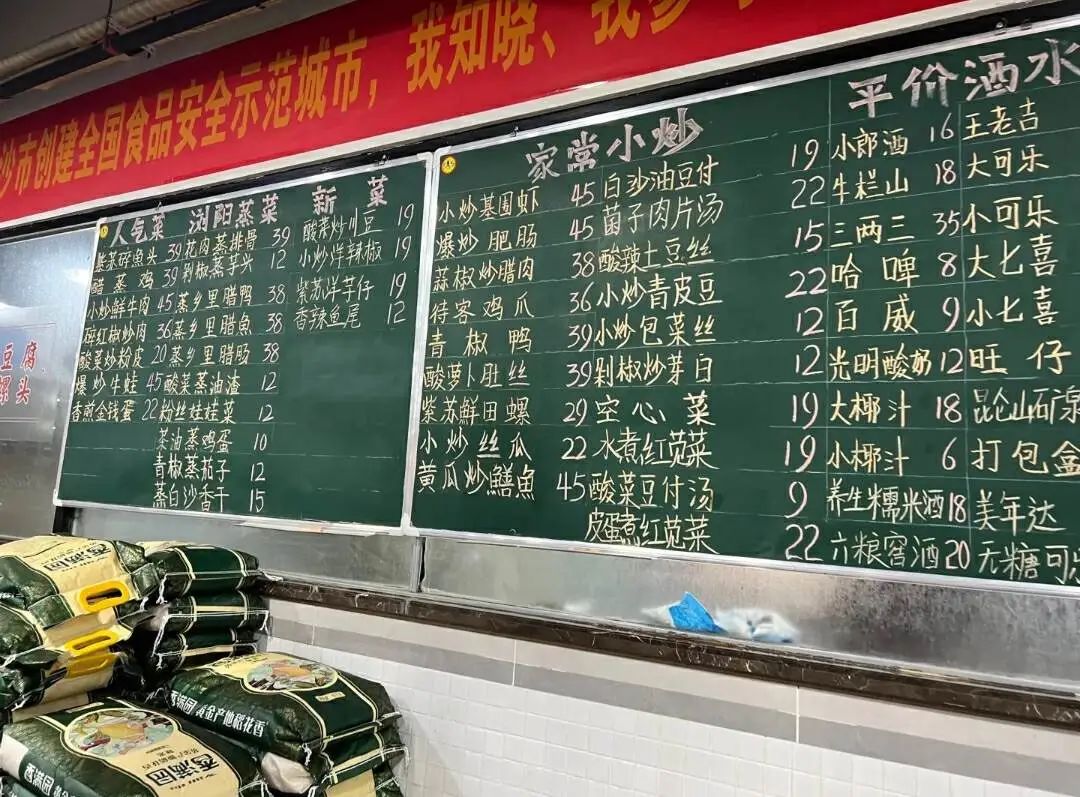 沙市创建全国食品安全示范城市，我知晓、我参
人气菜 浏阳蒸菜 新菜
碎魚头 39 花肉蒸排骨 39 酸菜炒川豆 19
醋蒸鸡 39 剁椒蒸芋头 12 小炒洋辣椒 19
小炒鲜牛肉 45 蒸乡里腊鸭 38 紫苏洋芋仔 19
碎红椒炒肉 36 蒸乡里腊魚 38 香辣鱼尾 12
酸菜炒粉皮 20 蒸乡里腊肠 38
爆炒牛蛙 45 酸菜蒸油渣 12
香煎金钱蛋 22 粉丝娃娃菜 12
茶油蒸鸡蛋 10
青椒蒸茄子 12
蒸白沙香干 15
家常小炒
小炒基围虾 45 白沙油豆付 19
爆炒肥肠 45 菌子肉片汤 22
蒜椒炒腊肉 38 酸辣土豆丝 15
待客鸡瓜 36 小炒青皮豆 22
青椒鸭 39 小炒包菜丝 12
酸萝卜肚丝 39 剁椒炒芽白 12
紫苏鲜田螺 29 空心菜 19
小炒丝瓜 22 水煮红苋菜 19
黄瓜炒鱔魚 45 酸菜豆付汤 9
皮蛋煮红苋菜 22
平价酒水
小郎酒 16 王老吉
牛栏山 18 大可乐
三两三 35 小可乐
哈啤 8 大七喜
百威 9 小七喜
光明酸奶 12 旺仔
大椰汁 18 昆仑山矿泉
小椰汁 6 打包盒
养生糯米酒 18 美年达
六粮窖酒 20 无糖可
豆腐
螺头
香满园 黄金产地稻花香
香满园